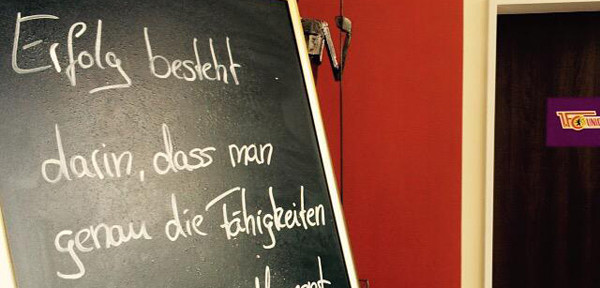 Erfolg besteht
darin, dass man
genau die Fähigkeiten